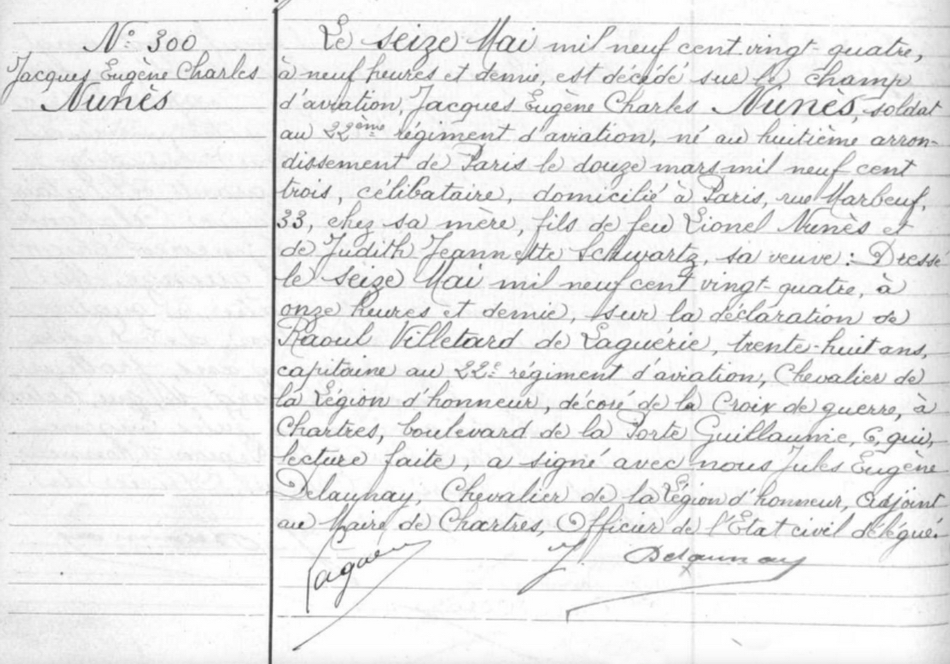 N° 300
Jacques Eugène Charles
Nunès
Le seize Mai mil neuf cent vingt-quatre,
à neuf heures et demie, est décédé sur le champ
d'aviation, Jacques Eugène Charles Nunès, soldat
au 22ème régiment d'aviation, né au huitième arron-
dissement de Paris le douze mars mil neuf cent
trois, célibataire, domicilié à Paris, rue Marbeuf,
33, chez sa mère, fils de feu Lionel Nunès et
de Judith Jeannette Schwartz, sa veuve : Dressé
le seize Mai mil neuf cent vingt-quatre, à
onze heures et demie, sur la déclaration de
Raoul Villetard de Laguérie, trente-huit ans,
capitaine au 22e régiment d'aviation, Chevalier de
la Légion d'honneur, décoré de la Croix de guerre, à
Chartres, boulevard de la Porte Guillaume, 6, qui,
lecture faite, a signé avec nous Jules Eugène
Delaunay, Chevalier de la Légion d'honneur, Adjoint
au Maire de Chartres, Officier de l'Etat civil délégué.
J. Delaunay